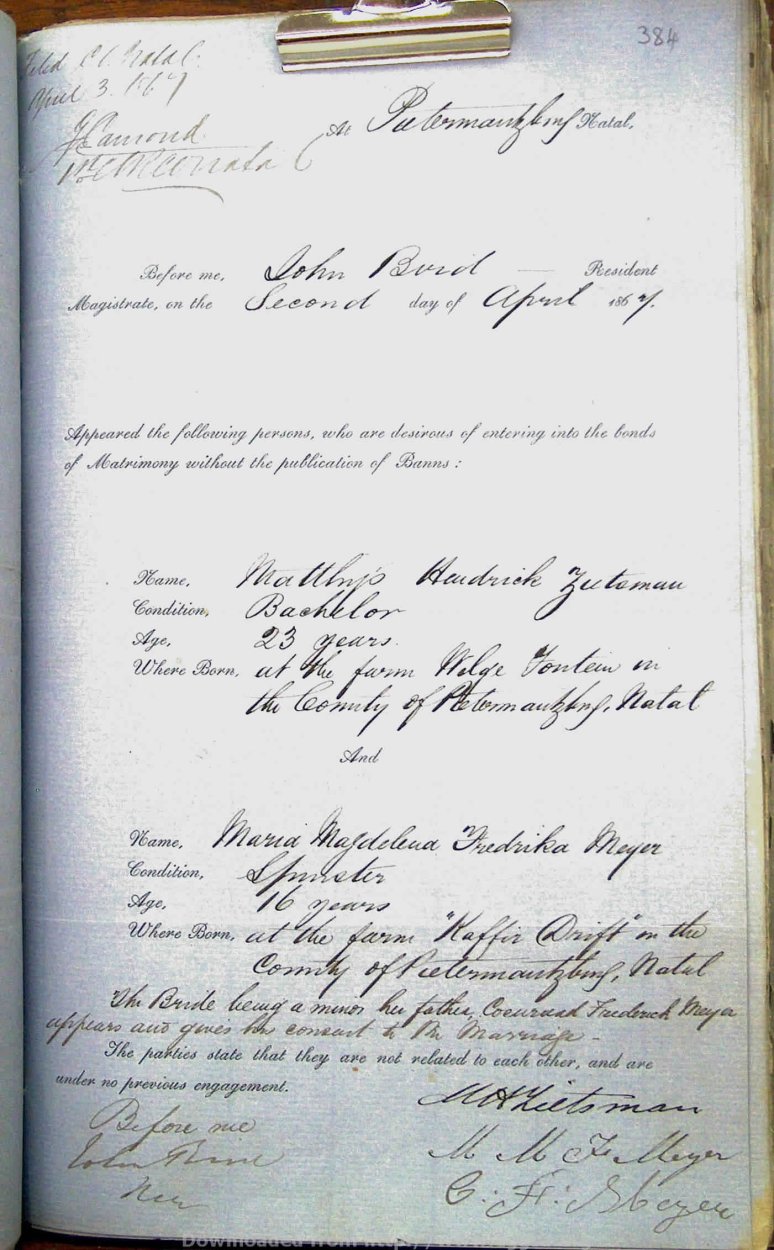 384
Filed
April 3. 1867
At Pietermaritzburg Natal,
Before me, John Bird — Resident
Magistrate, on the Second day of April 1867.
Appeared the following persons, who are desirous of entering into the bonds
of Matrimony without the publication of Banns :
Name, Matthys Hendrick Zietsman
Condition, Bachelor
Age, 23 years.
Where Born, at the farm Wilge Fontein in
the County of Pietermaritzburg, Natal
And
Name, Maria Magdelena Fredrika Meyer
Condition, Spinster
Age, 16 years
Where Born, at the farm "Kaffir Drift" in the
County of Pietermaritzburg, Natal
The Bride being a minor her father, Frederick Meyer
appears and gives his consent to the Marriage -
The parties state that they are not related to each other, and are
under no previous engagement.
M H Zietsman
Before me
M M F Meyer
John Bird
C. F. Meyer
Downloaded from